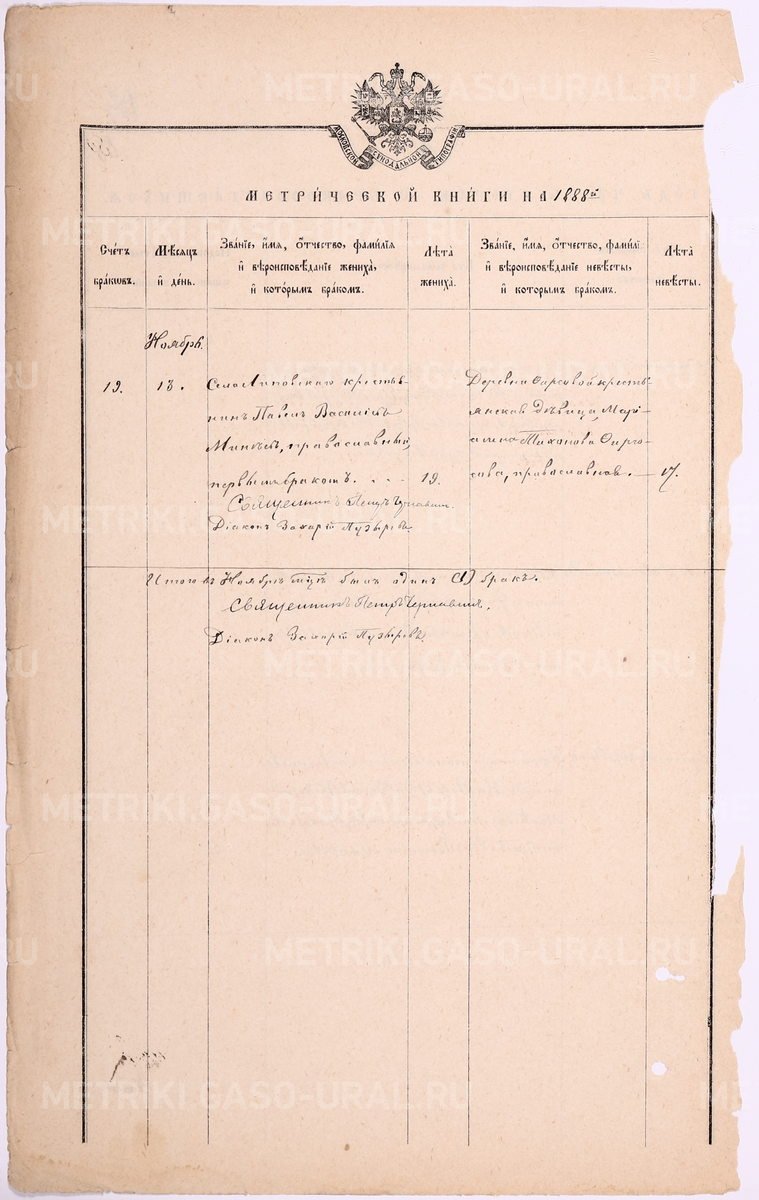 МОСКОВСКОЙ СѴНОДАЛЬНОЙ ТИПОГРАФІИ
МЕТРИЧЕСКОЙ КНИГИ НА 1888й
Счетъ браковъ.
Мѣсяцъ и день.
Званіе, имя, отчество, фамилія
и вѣроисповѣданіе жениха,
и которымъ бракомъ.
Лѣта жениха.
Званіе, имя, отчество, фамилі
и вѣроисповѣданіе невѣсты,
и которымъ бракомъ.
Лѣта невѣсты.
Ноябрь.
19. 13. Села Липовскаго крестья-
нинъ Павелъ Василіевъ
православный,
первымъ бракомъ. 19.
Священникъ Петръ Чернавинъ.
Діаконъ Захарій Пузыревъ
крестья-
янская дѣвица, Марі-
амна Тихонова
православная. 17.
Итого въ Ноябрѣ мцѣ былъ одинъ (1) бракъ.
Священникъ Петръ Чернавинъ.
Діаконъ Захарій Пузыревъ.
METRIKI.GASO-URAL.RU